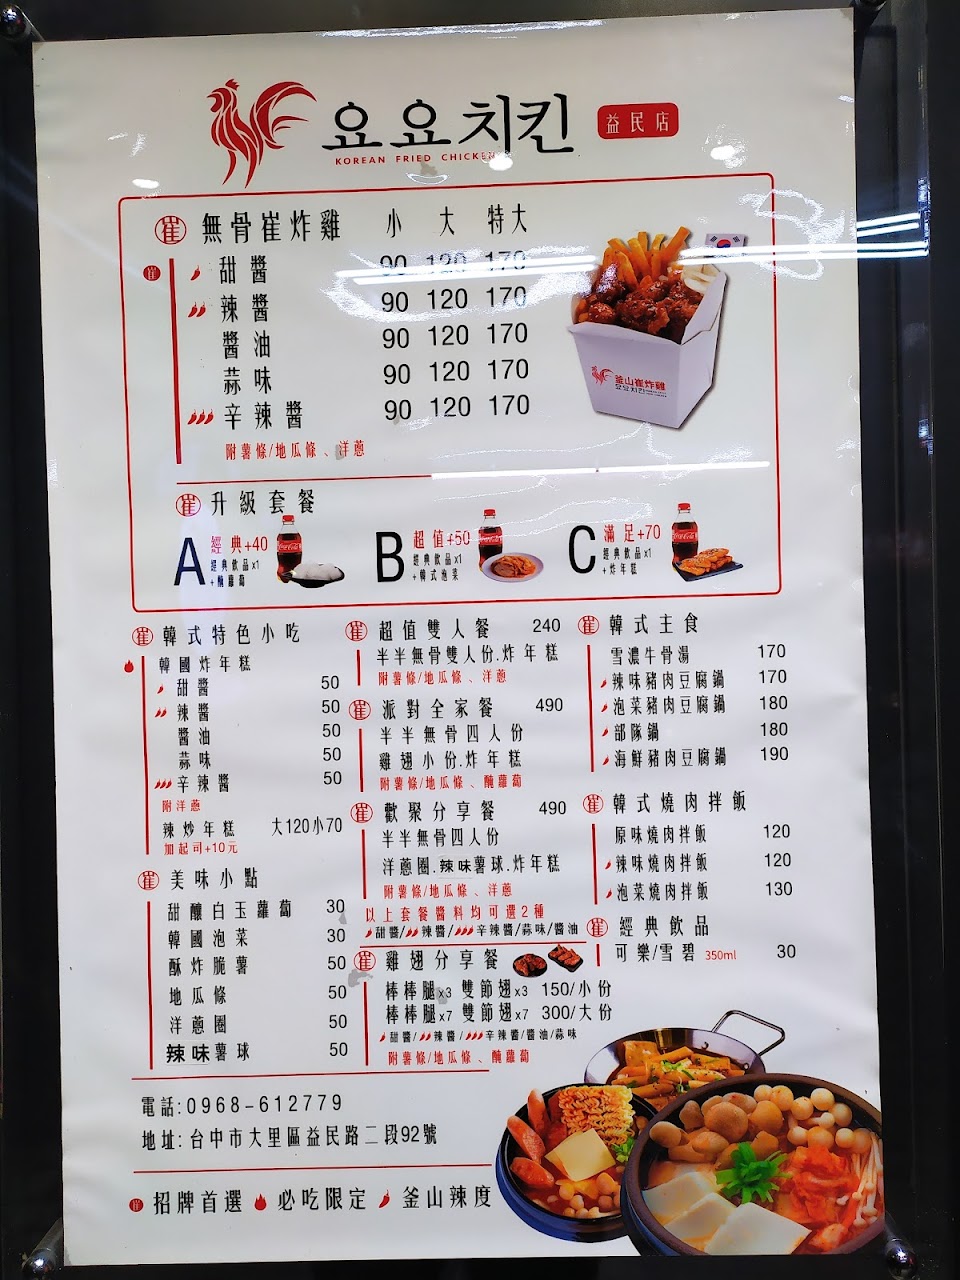 요요치킨 益民店
KOREAN FRIED CHICKEN
崔 無骨崔炸雞 小 大 特大
崔 甜醬 90 120 170
辣醬 90 120 170
醬油 90 120 170
蒜味 90 120 170
辛辣醬 90 120 170
附薯條/地瓜條、洋蔥
釜山崔炸雞
요요치킨
崔 升級套餐
A 經典+40
經典飲品x1
+醃蘿蔔
B 超值+50
經典飲品x1
+韓式泡菜
C 滿足+70
經典飲品x1
+炸年糕
崔 韓式特色小吃
韓國炸年糕
甜醬 50
辣醬 50
醬油 50
蒜味 50
辛辣醬 50
附洋蔥
辣炒年糕 大120小70
加起司+10元
崔 美味小點
甜釀白玉蘿蔔 30
韓國泡菜 30
酥炸脆薯 50
地瓜條 50
洋蔥圈 50
辣味薯球 50
崔 超值雙人餐 240
半半無骨雙人份.炸年糕
附薯條/地瓜條、洋蔥
崔 派對全家餐 490
半半無骨四人份
雞翅小份.炸年糕
附薯條/地瓜條、醃蘿蔔
崔 歡聚分享餐 490
半半無骨四人份
洋蔥圈.辣味薯球.炸年糕
附薯條/地瓜條、洋蔥
以上套餐醬料均可選2種
甜醬/辣醬/辛辣醬/蒜味/醬油
崔 雞翅分享餐
棒棒腿x3 雙節翅x3 150/小份
棒棒腿x7 雙節翅x7 300/大份
甜醬/辣醬/辛辣醬/醬油/蒜味
附薯條/地瓜條、醃蘿蔔
崔 韓式主食
雪濃牛骨湯 170
辣味豬肉豆腐鍋 170
泡菜豬肉豆腐鍋 180
部隊鍋 180
海鮮豬肉豆腐鍋 190
崔 韓式燒肉拌飯
原味燒肉拌飯 120
辣味燒肉拌飯 120
泡菜燒肉拌飯 130
崔 經典飲品
可樂/雪碧 350ml 30
電話:0968-612779
地址:台中市大里區益民路二段92號
崔 招牌首選 必吃限定 釜山辣度